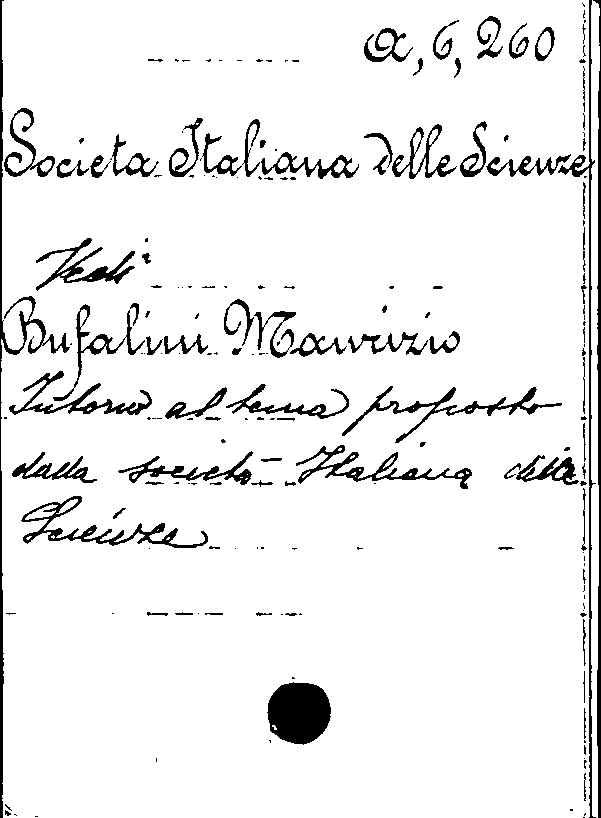 A, 6, 260
Societa Italiana delle Scienze
Vedi
Bufalini Maurizio
Intorno al tema proposto
dalla società Italiana delle
Scienze